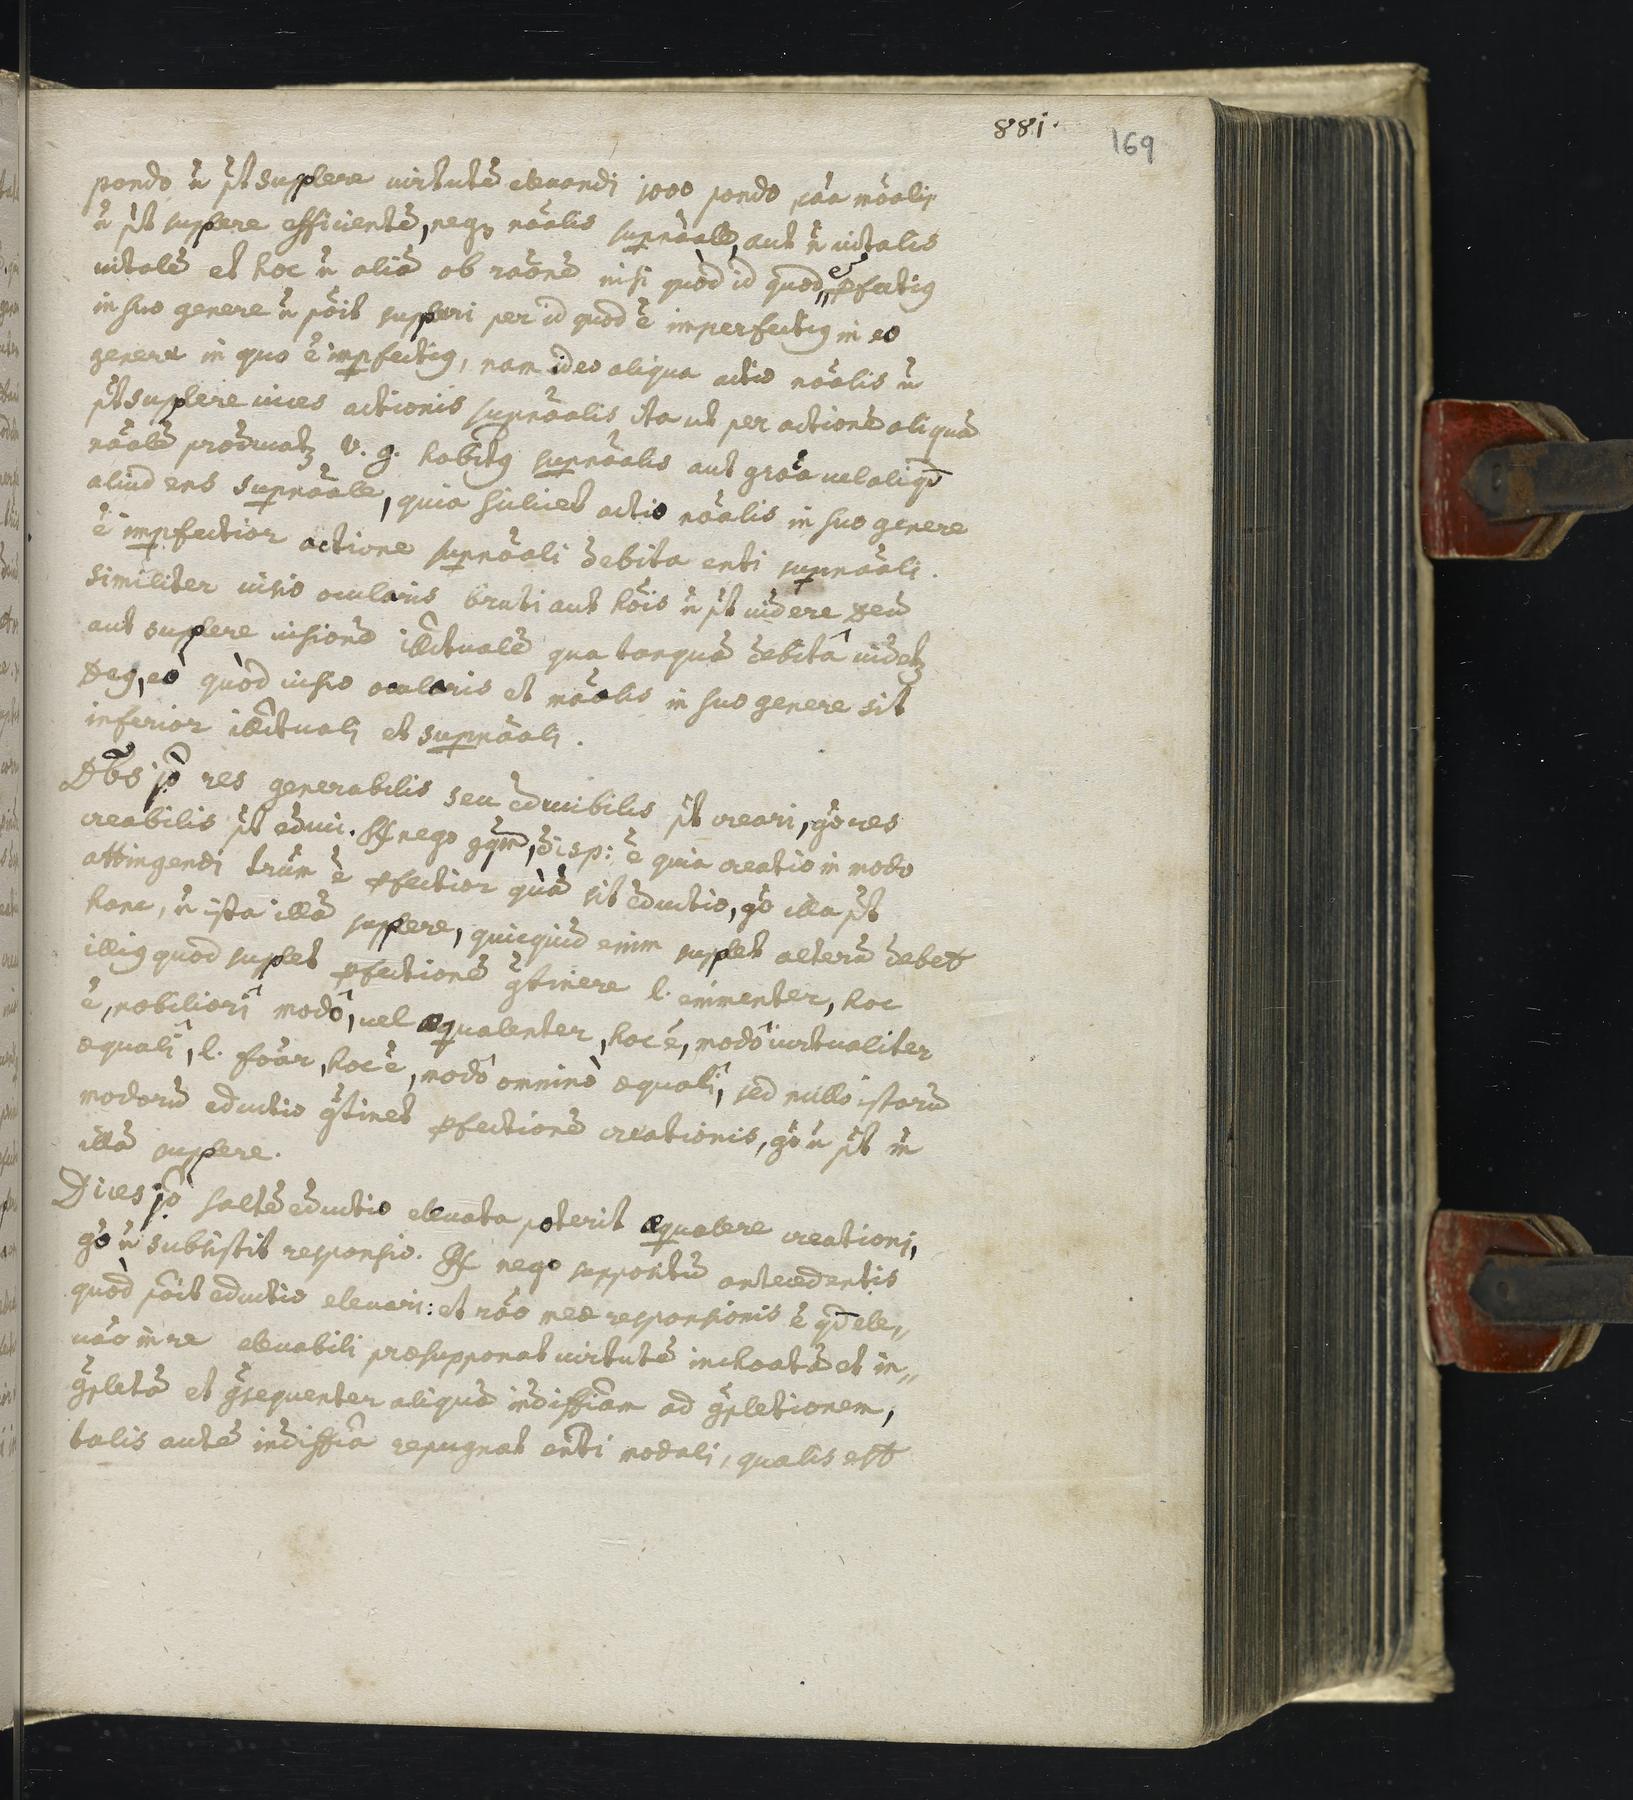 881.
169
pondo ñ pt supplere uirtutẽ eleuandi 1000 pondo, cãa mõalis
ñ pt supplere efficientẽ, neqꝫ nãalis supnãalẽ, aut ñ uitalis
uitalẽ et hoc ñ aliã ob rãonẽ nisi quòd id quod ẽ pfectiꝯ
in suo genere ñ põit suppleri per id quod ẽ imperfectiꝯ in eo
genere in quo ẽ impfectiꝯ, nam ideo aliqua actio nãalis ñ
pt supplere uices actionis supnãalis ita ut per actionẽ aliquã
nãalẽ producatꝫ v. g. habitꝯ supnãalis aut grãa uel aliqđ
aliud ens supnãale, quia scilicet actio nãalis in suo genere
ẽ impfectior actione supnãali debita enti supnãali.
Similiter uisio ocularis bruti aut hõis ñ pt uidere Deũ
aut supplere uisionẽ illẽctualẽ qua tanquã debitâ uidetꝫ
Deꝯ, eò quòd uisio ocularis et nãalis in suo genere sit
inferior illẽctuali et supnãali.
Dẽs jõ res generabilis seu educibilis pt creari, gõ res
creabilis pt educi. R nego ꝯqm̃, disp: ẽ quia creatio in modo
attingendi trũm ẽ pfectior quã sit eductio, gõ illa pt
hanc, ñ ista illã supplere, quicquid enim supplet alterũ debet
illiꝯ quod supplet pfectionẽ ꝯtinere l. eminenter, hoc
ẽ, nobiliorî modô, uel æqualenter, hoc ẽ, modô uirtualiter
æqualî, l. fõar, hoc ẽ, modô omninò æqualî, sed nullo istorũ
modorũ eductio ꝯtinet pfectionẽ creationis, gõ ñ pt ñ
illã supplere.
Dices jõ saltẽ eductio eleuata poterit æqualere creationi,
gõ ñ subsistit responsio. R nego suppositũ antecedentis
quòd põit eductio eleuari: et rão meæ responsionis ẽ qđ ele„
uão in re eleuabili præsupponat uirtutẽ inchoatã et in„
ꝯpletã et ꝯsequenter aliquã indiffiãm ad ꝯpletionem,
talis autẽ indiffiã repugnat enti modali, qualis est